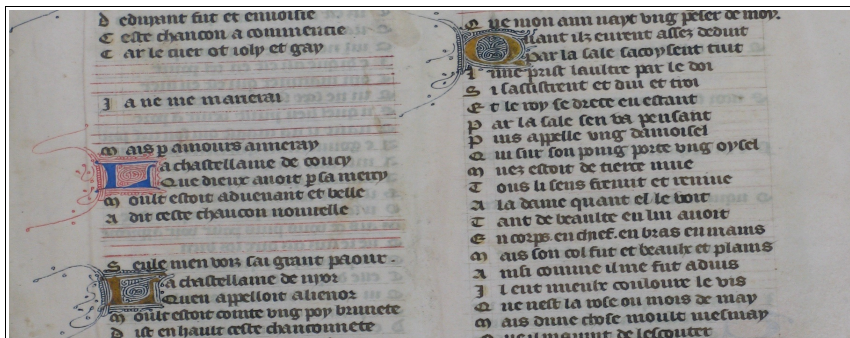 D edurant fut et enuoisie
C este chancon a commencie
C ar le cuer ot ioly et gay
J a ne me marierai
M ais p amours ameray
L a chastellaine de coucy
Que dieux auoit p sa mercy
M oult estoit aduenant et belle
A dit ceste chancon nouuelle
S eule men vois sai grant paour
L a chastellaine de nyor
Quen appelloit alienor
M oult estoit cointe vng poy brunete
D ist en hault ceste chanconnete
Q ue mon ami nayt vng penser de moy.
Quant ilz eurent assez deduit
par la sale sacoysent tuit
L une prist laultre par le doi
S i sassistrent et dui et troi
E t le roy se drece en estant
P ar la sale sen va pensant
P uis appelle vng damoisel
Q ui sur son poing porte vng oysel
M uez estoit de tierce mue
T ous li sens fremit et remue
A la dame quant el le voit
T ant de beaulte en lui auoit
E n corps en chief. en bras en mains
M ais son col fut et beaulx et plains
A insi comme il me fut aduis
J l eut mieulx couloure le vis
Q ue nest la rose ou mois de may
M ais dune chose moult mesmay
de lescouter